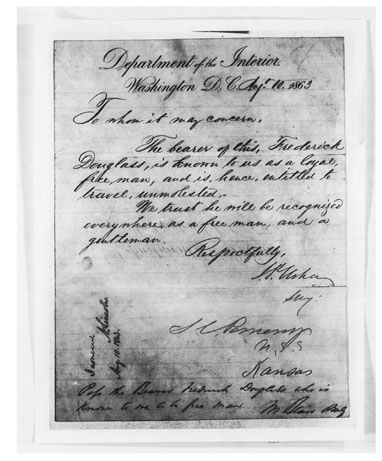 Department of the Interior.
Washington D. C. Augt. 10. 1863
To whom it may concern,
The bearer of this, Frederick
Douglass, is known to us as a loyal,
free, man, and is, hence, entitled to
travel, unmolested.
We trust he will be recognized
everywhere, as a free man, and a
gentleman.
Respectfully,
J. P. Usher
Secy.
S. C. Pomeroy
U. S. S
Kansas
I concur
A. Lincoln
Aug. 10. 1863.
Pass the Bearer Frederick Douglass who is
known to me to be free man M Blair